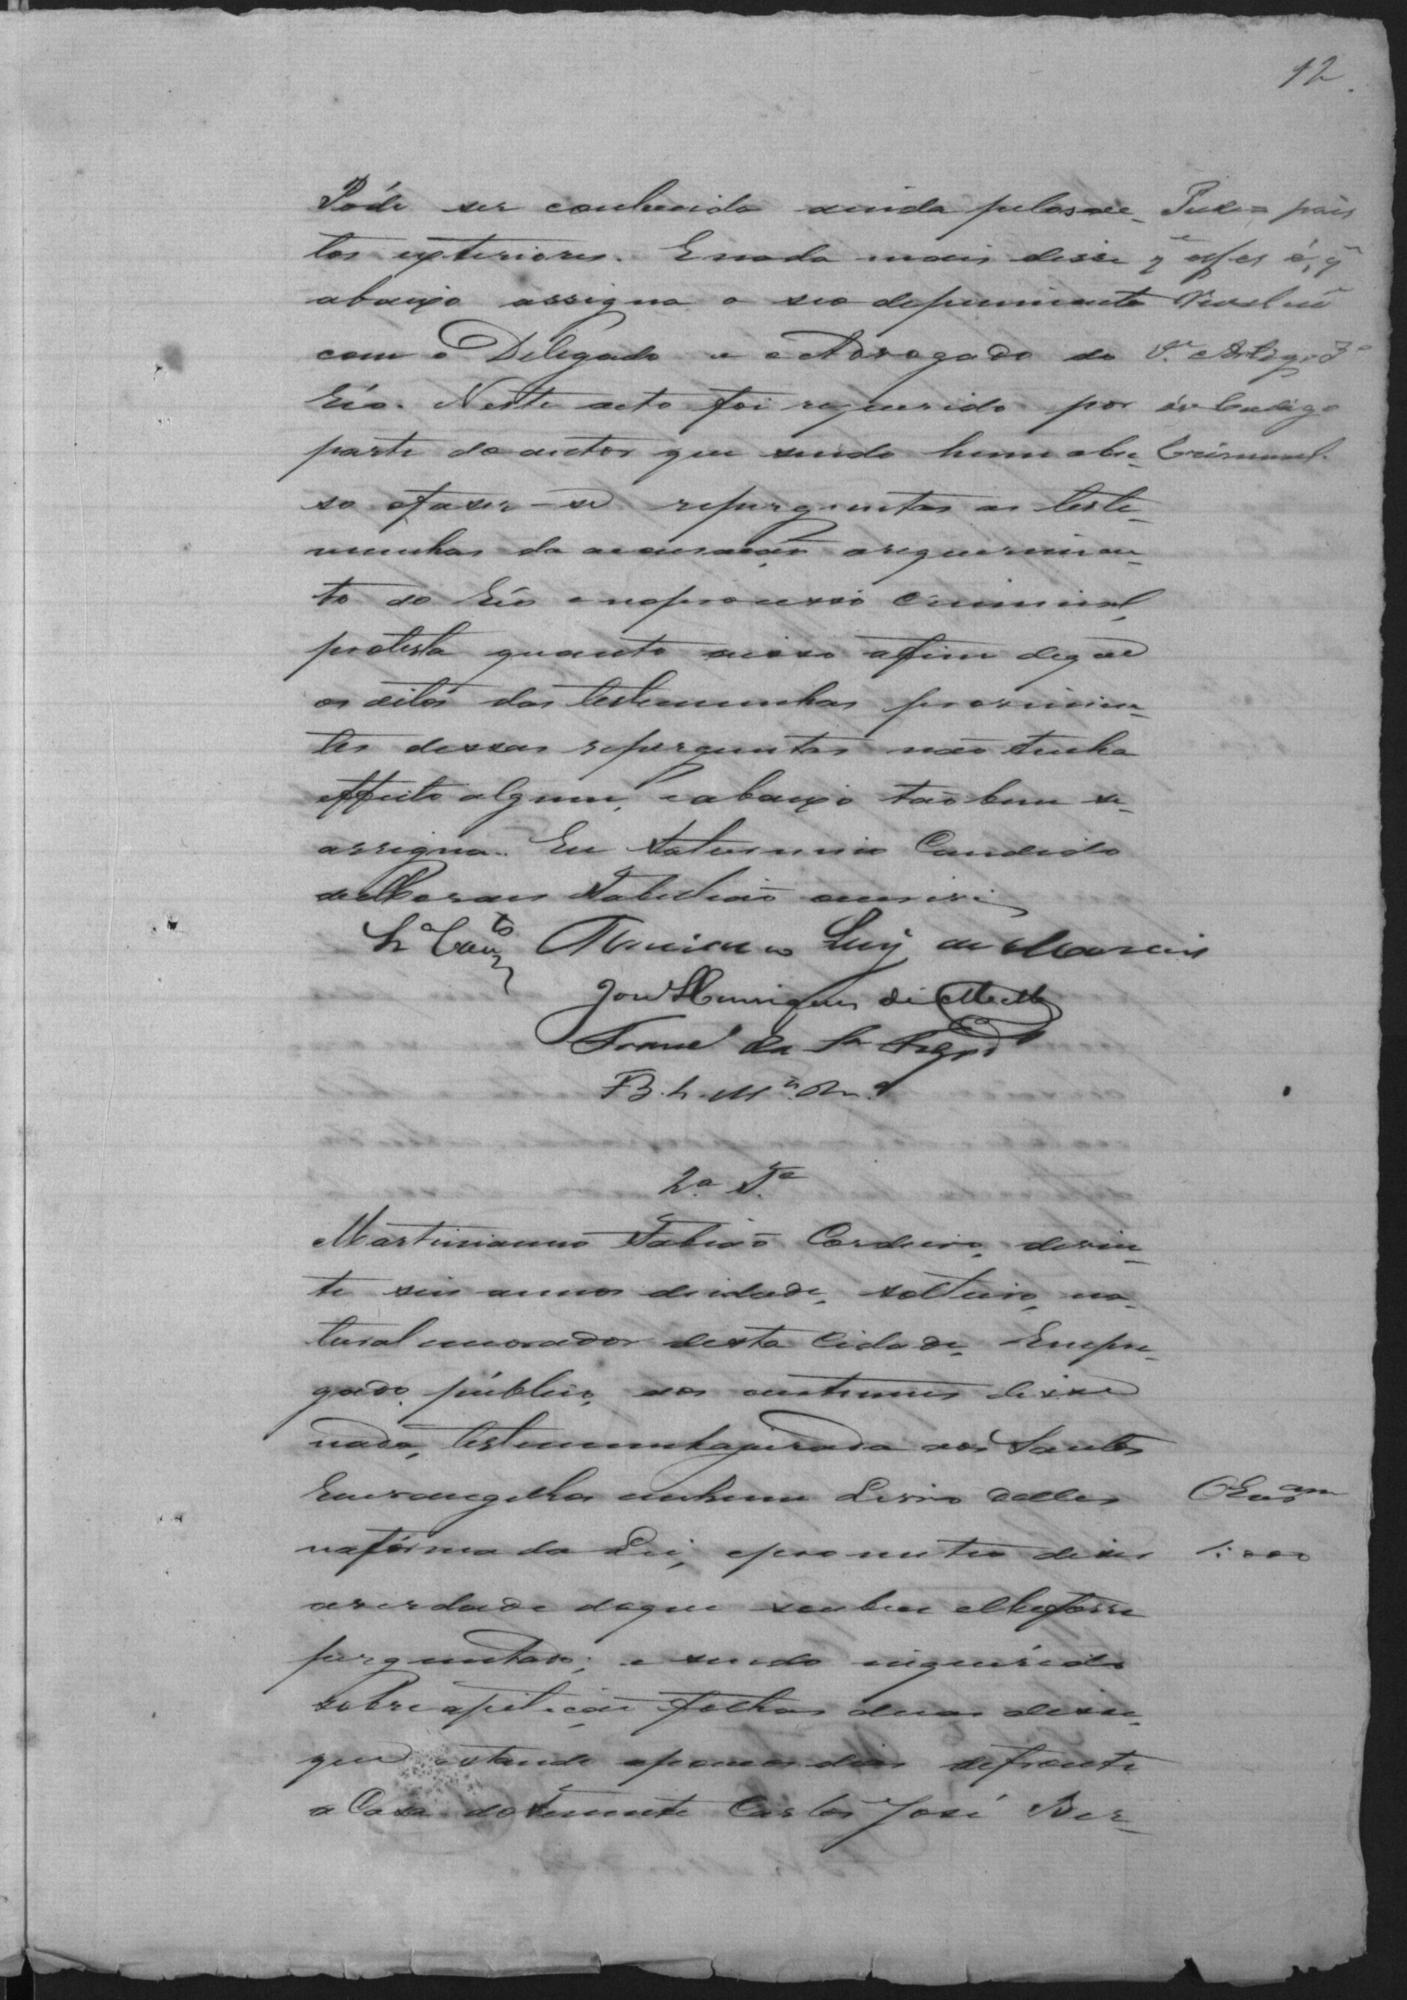 12
Póde ser conhecido ainda pelos ac-
tos exteriores. E nada mais disse
abaixo assigna o seo depuimento
com o Delegado e o Advogado do
Réo. Neste acto foi requerido por
parte do autor que sendo hum abu-
so o faser-se reperguntas as teste-
munhas da accusação a requerimen-
to do Réo e no processo criminal,
protesta quanto a isso afim de que
os ditos das testemunhas provinien-
tes dessas reperguntas não tenha
effeito algum, e abaixo tão bem se
assigna. Eu Saturnino Candido
de Moraes Tabelião escrivi
Luiz de Moraes
José Henriques de Mello
2.ª T.ª
Martinianno Fabião Cordeiro, de vin-
te seis annos de idade, solteiro, na-
tural morador desta Cidade, Empre-
gado público, aos custumes disse
nada, testemunha jurada aos Santos
Euvangelhos em hum Livro delles
na fórma da Lei, e prometteo diser
a verdade do que souber e lhe fosse
perguntado; e sendo inquirido
sobre a petição folhas duas disse
que estando a poucos dias defronte
a Casa do Tenente Carlos José Ber-
pois
Artigo 3º
do Codigo
Criminal.